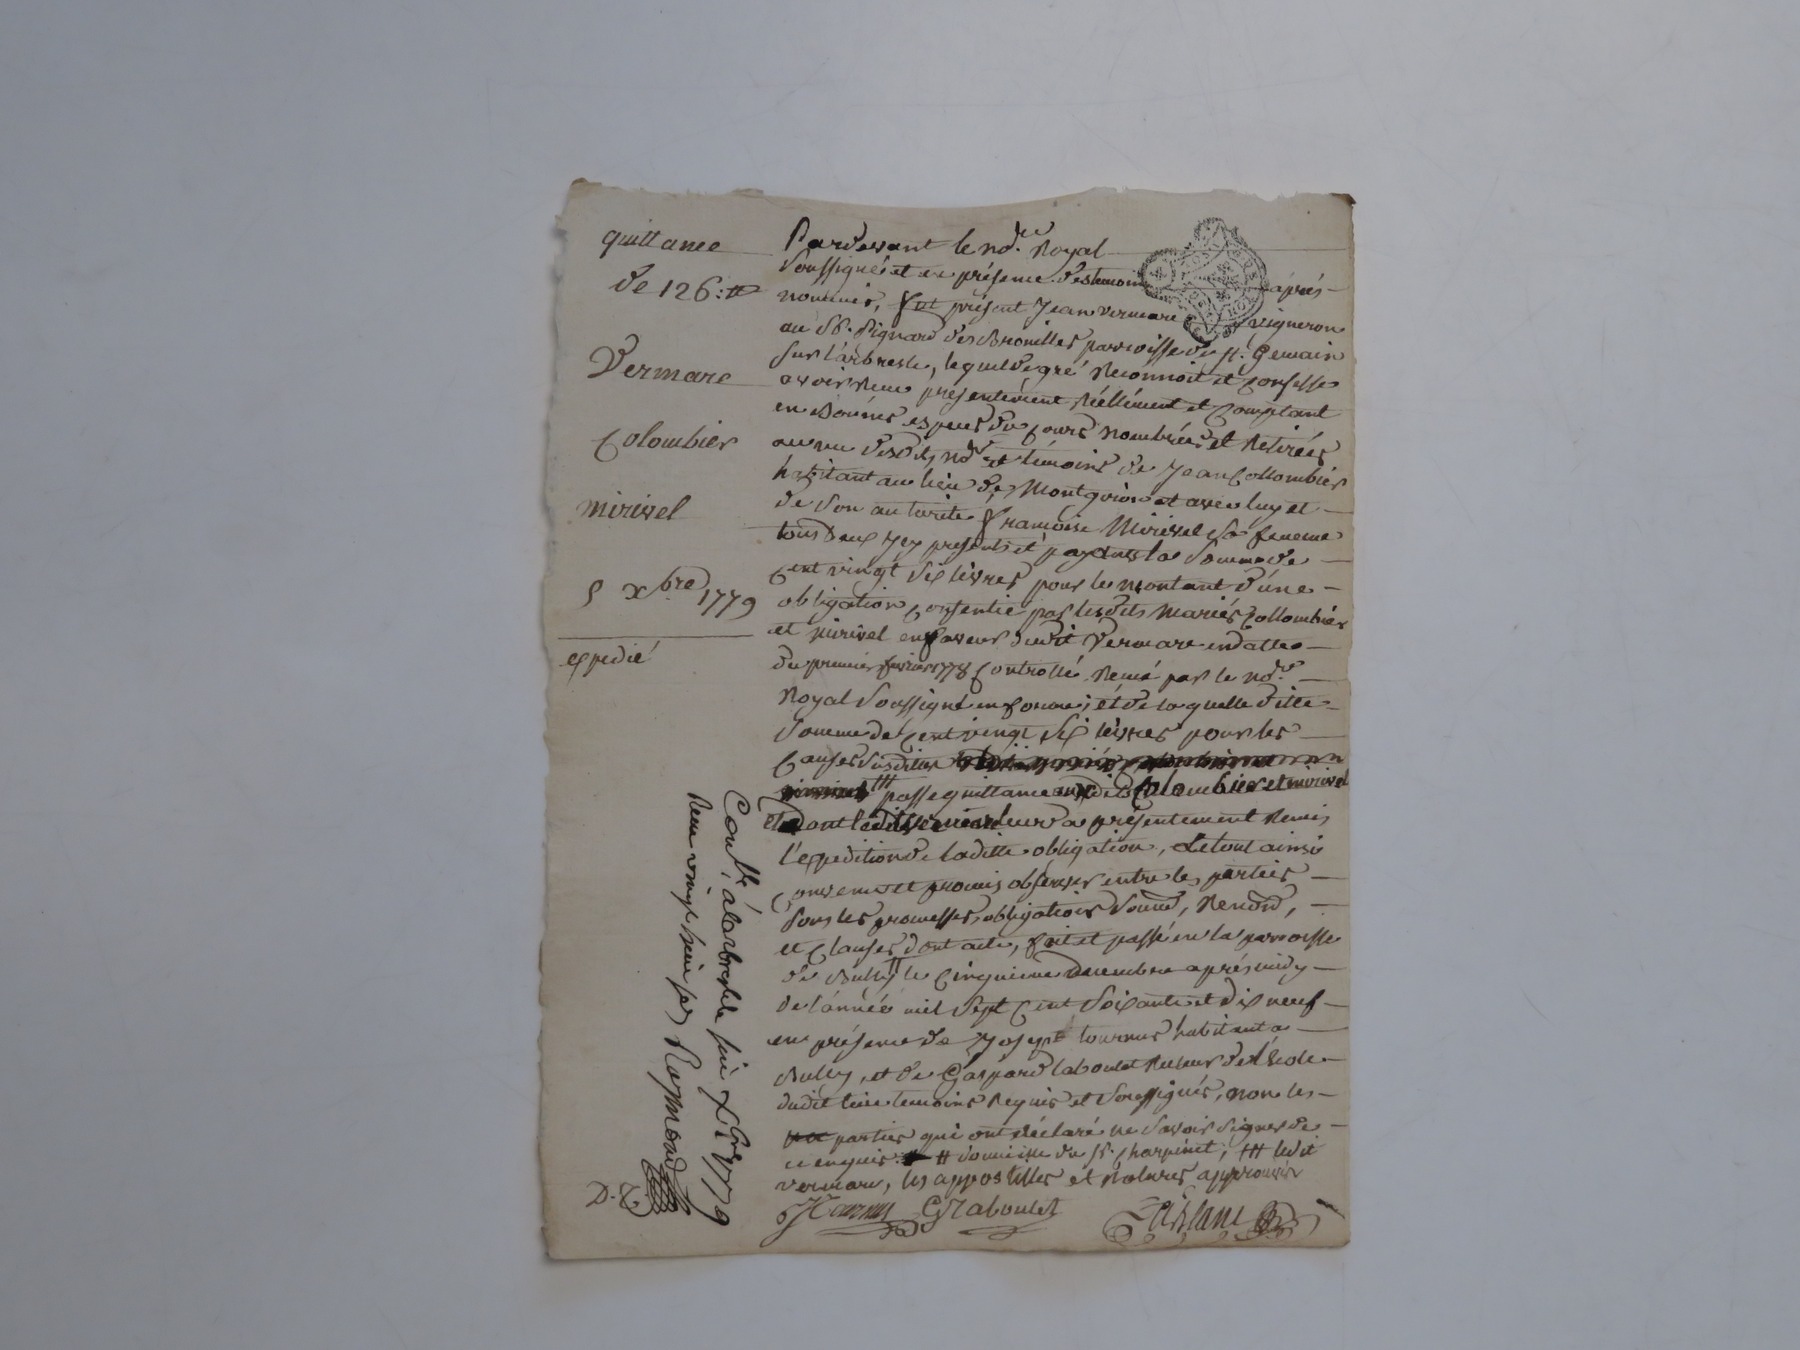 quittance
de 126:tt
Vermare
Colombier
mirivel
5 Xbre 1779
expedié
Pardevant le nore. Royal
soussigné et en présence des temoins après
nommés, fut présent Jean vermare vigneron
au Sr. Pignard des Brouilles parroisse de st. Germain
sur l'arbresle, lequel de gré reconnoit et confesse
avoir reçu présentement réellement et comptant
en bonnes espèces du cours nombrées et retirées
au vu desdits nore. et témoins de Jean Collombier
habitant au lieu de et avec luy et
de son autorité françoise Mirivel sa femme
tous deux icy présents et payants la somme de
cent vingt six livres pour le montant d'une
obligation consentie par lesdits mariés Collombier
et mirivel en faveur dudit Vermare en datte
du premier fevrier 1778 Controllé. Remié par le nore.
Royal soussigné en forme; et de laquelle ditte
somme de Cent vingt six livres pour les
causes susdittes
+++ passe quittance auxdits Colombier et mirivel
et dont ledit leur a présentement remis
l'expedition de laditte obligation, Le tout ainsi
convenu et promis observer entre les parties
sous les promesses, obligations soumd, renond,
et clauses dont acte, fait et passé en la parroisse
de Bully ++ le cinquieme decembre après midy
de l'année mil sept cent soixante et dix neuf
en présence de Joseph tournus habitant a
Bully, et de Gaspard laboulet recteur de l'école
dudit lieu temoins requis et soussignés, non les
parties qui ont déclaré ne savoir signer de
ce enquis. ++ domicile du sr. charpinet, +++ ledit
vermare, les appostilles et ratures approuvés
Tournus GLaboulet
Contlé. a larbresle le Xbre 1779
Reçu vingt huit sols Raymond
D. E.